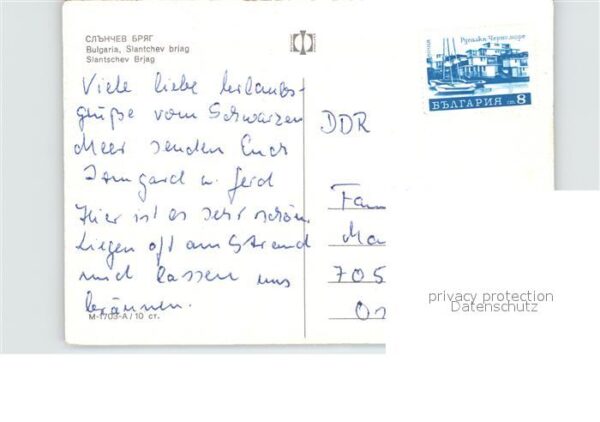 СЛЪНЧЕВ БРЯГ
Bulgaria, Slantchev briag
Slantschev Brjag
Viele liebe Urlaubs-
grüße vom Schwarzen
Meer senden Euch
Irmgard u. Gerd
Hier ist es sehr schön
liegen oft am Strand
und lassen uns
bräunen.
М-1703-А/10 ст.
Русалка Черно море
БЪЛГАРИЯ ст. 8
DDR
Fam
Ma
705
privacy protection
Datenschutz